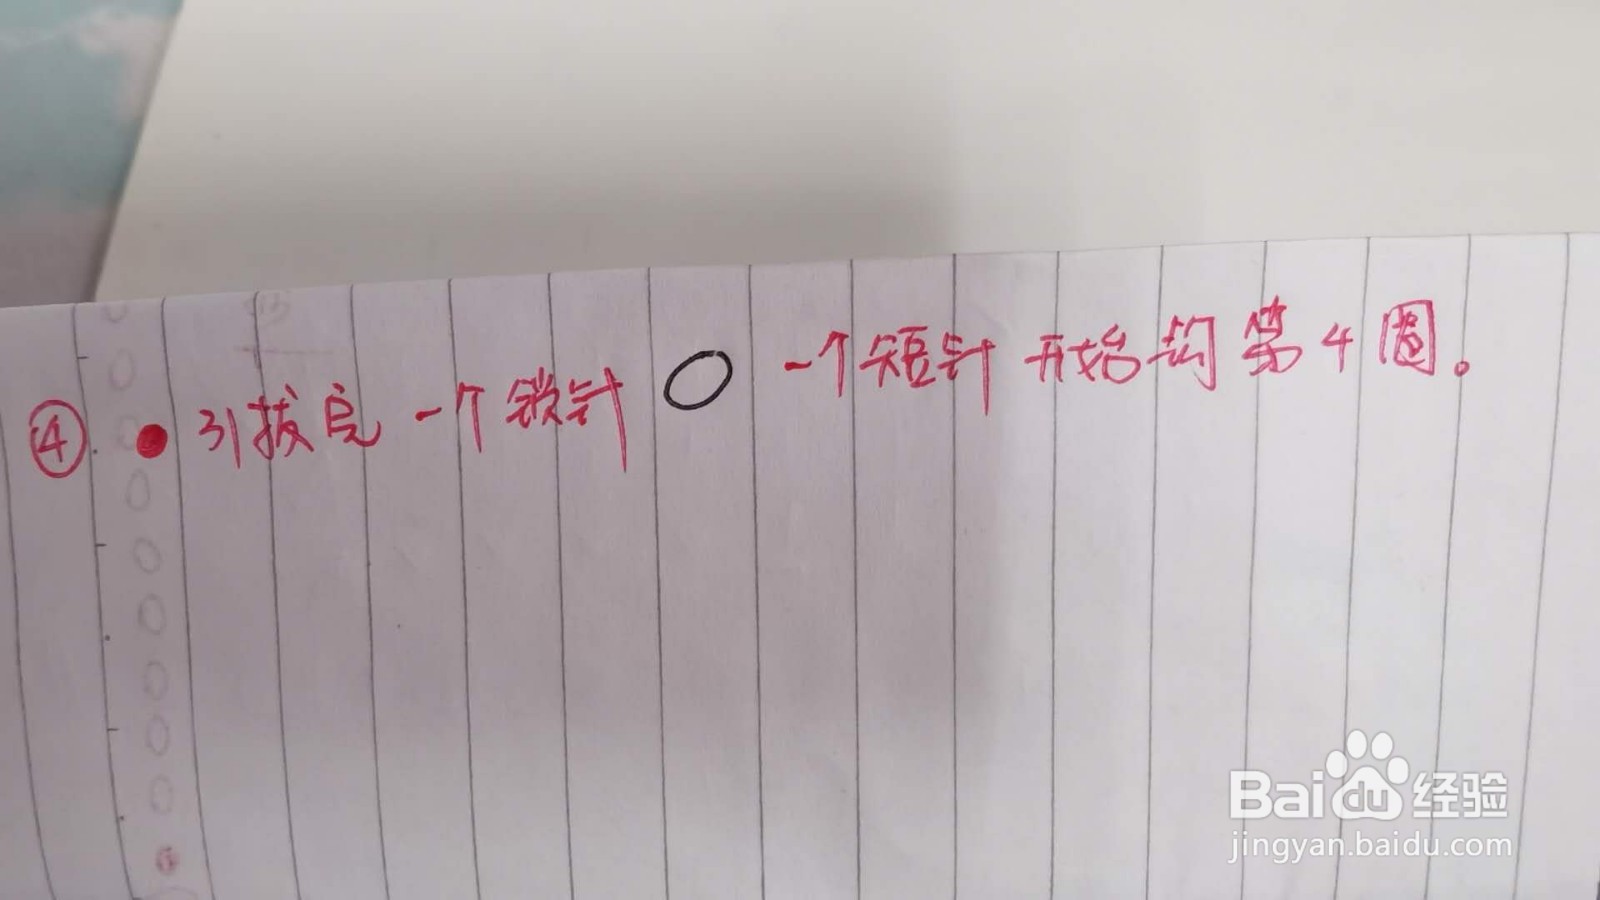 ④ ● 引拔完一个锁针 ○ 一个短针开始钩第4圈。
Baidu 经验
jingyan.baidu.com